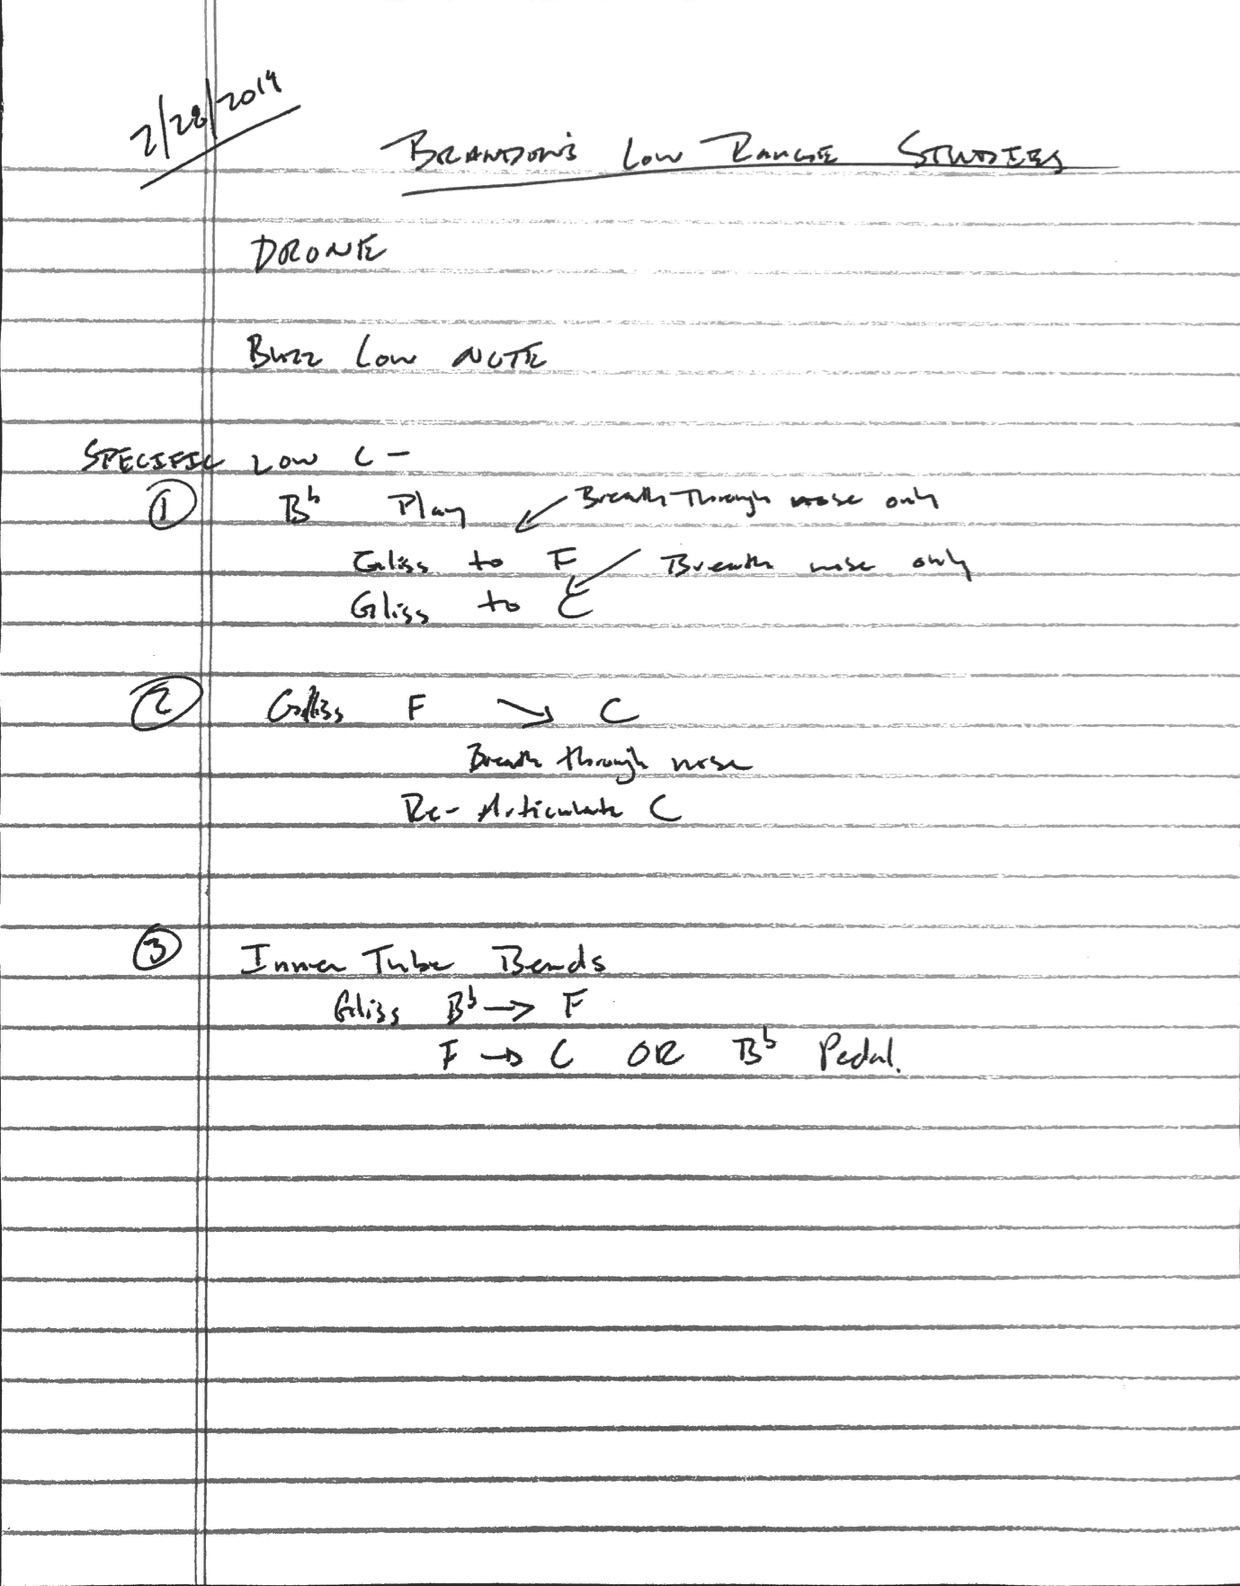 2/28/2014
BRANDON'S LOW RANGE STUDIES
DRONE
BUZZ LOW NOTE
SPECIFIC LOW C -
① B♭ Play Breath Through nose only
Gliss to F Breath nose only
Gliss to C
② Gliss F ↘ C
Breath through nose
Re-Articulate C
③ Inner Tube Bends
Gliss B♭ → F
F → C OR B♭ Pedal.